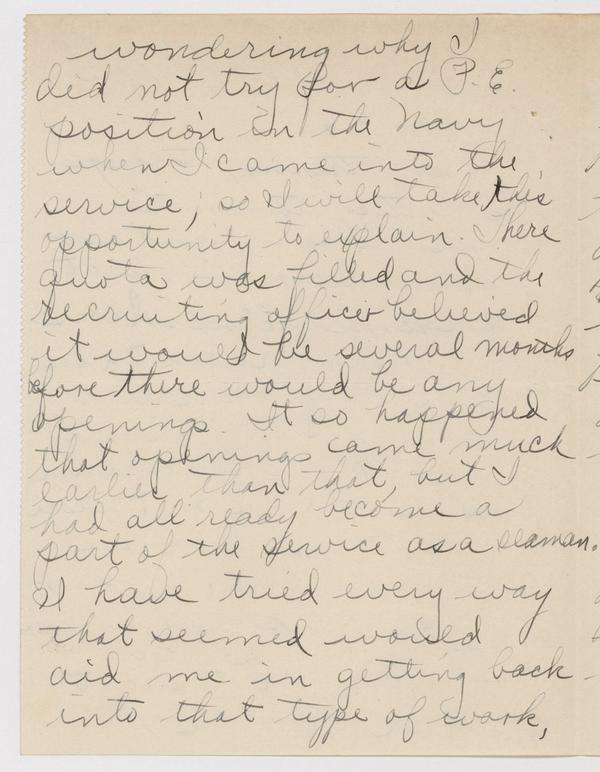 wondering why I
did not try for a P.E.
position in the Navy
when I came into the
service, so I will take this
opportunity to explain. There
quota was filled and the
recruiting officer believed
it would be several months
before there would be any
openings. It so happened
that openings came much
earlier than that, but I
had all ready become a
part of the service as a seaman.
I have tried every way
that seemed would
aid me in getting back
into that type of work,